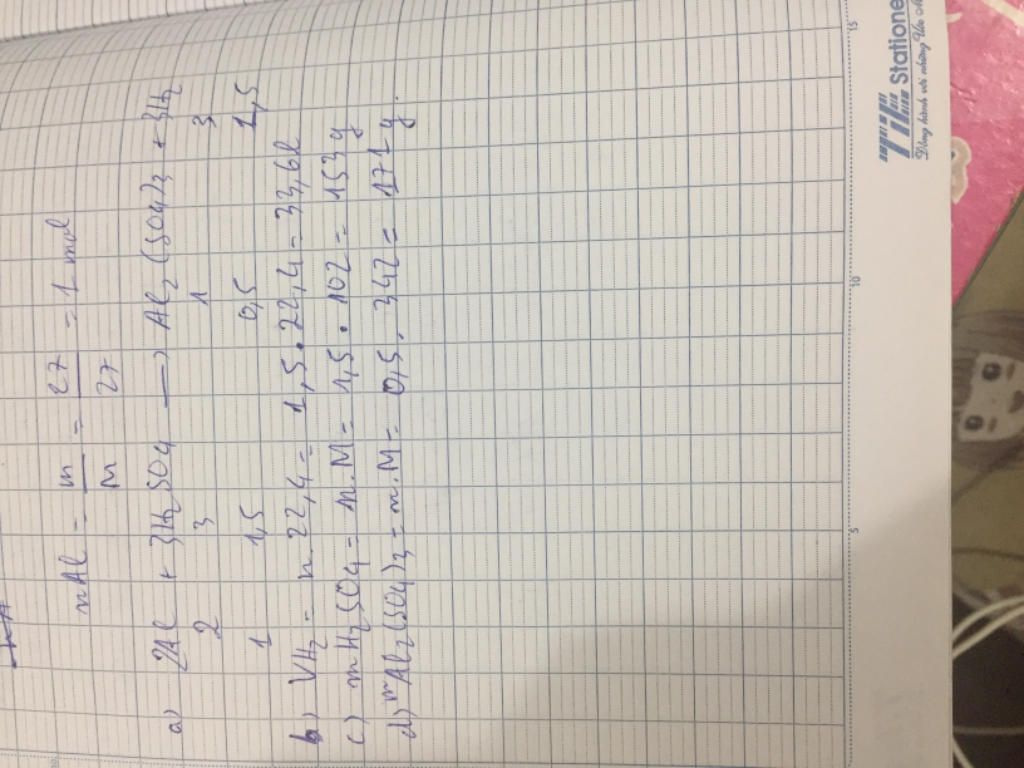 nAl = m/M = 27/27 = 1 mol
a) 2Al + 3H2SO4 → Al2(SO4)3 + 3H2
2 3 1 3
1 1,5 0,5 1,5
b) VH2 = n.22,4 = 1,5.22,4 = 33,6l
c) mH2SO4 = n.M = 1,5.102 = 153g
d) mAl2(SO4)3 = n.M = 0,5.342 = 171g.
5 10 15
Stationе
Đồng hành với những